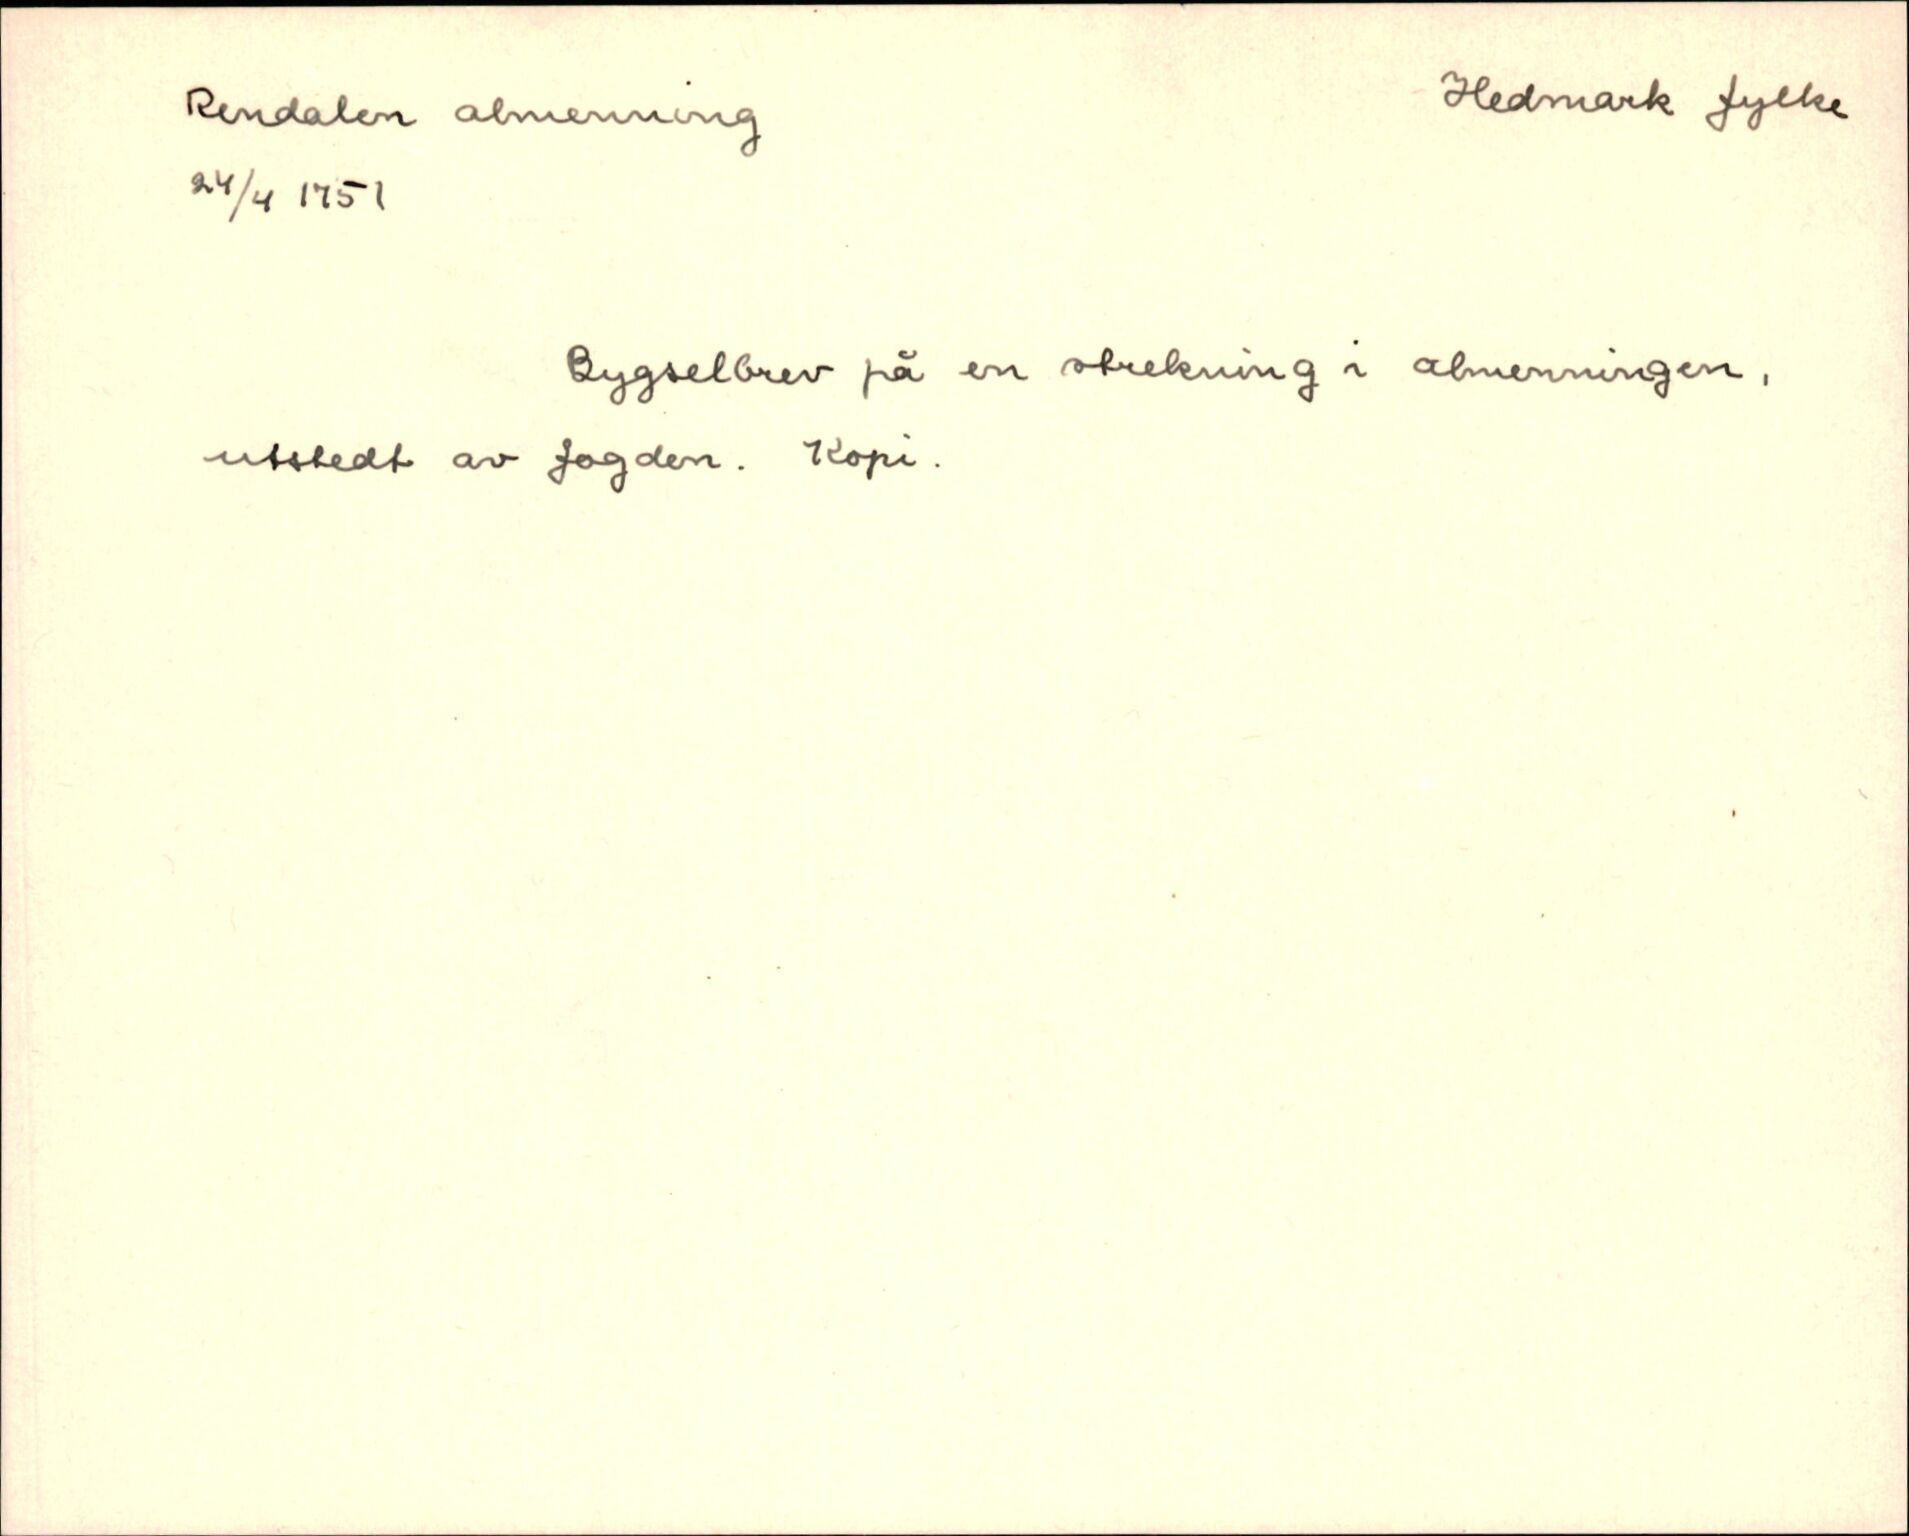 Rendalen almenning
Hedmark fylke
24/4 1751
Bygselbrev på en strekning i almenningen,
utstedt av fogden. Kopi.